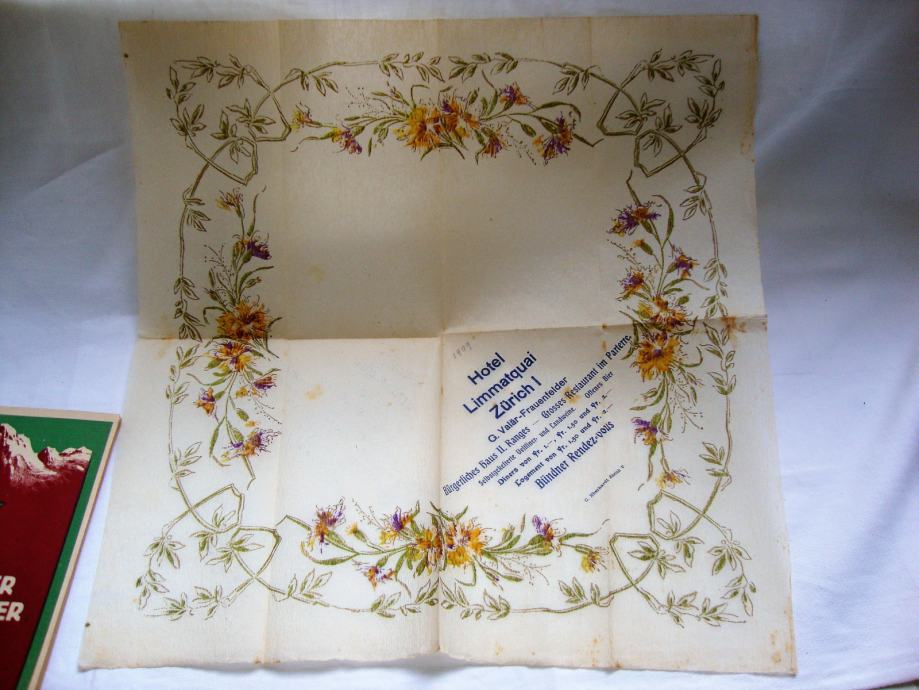 1909
Hotel
Limmatquai
Zürich I
G. Valär-Frauenfelder
Bürgerliches Haus II. Ranges — Grosses Restaurant im Parterre
Selbstgekelterte Veltliner- und Landweine — Offenes Bier
Diners von Fr. 1.—, Fr. 1.50 und Fr. 2.—
Logement von Fr. 1.50 und Fr. 2.—
Bündner Rendez-vous
R
ER